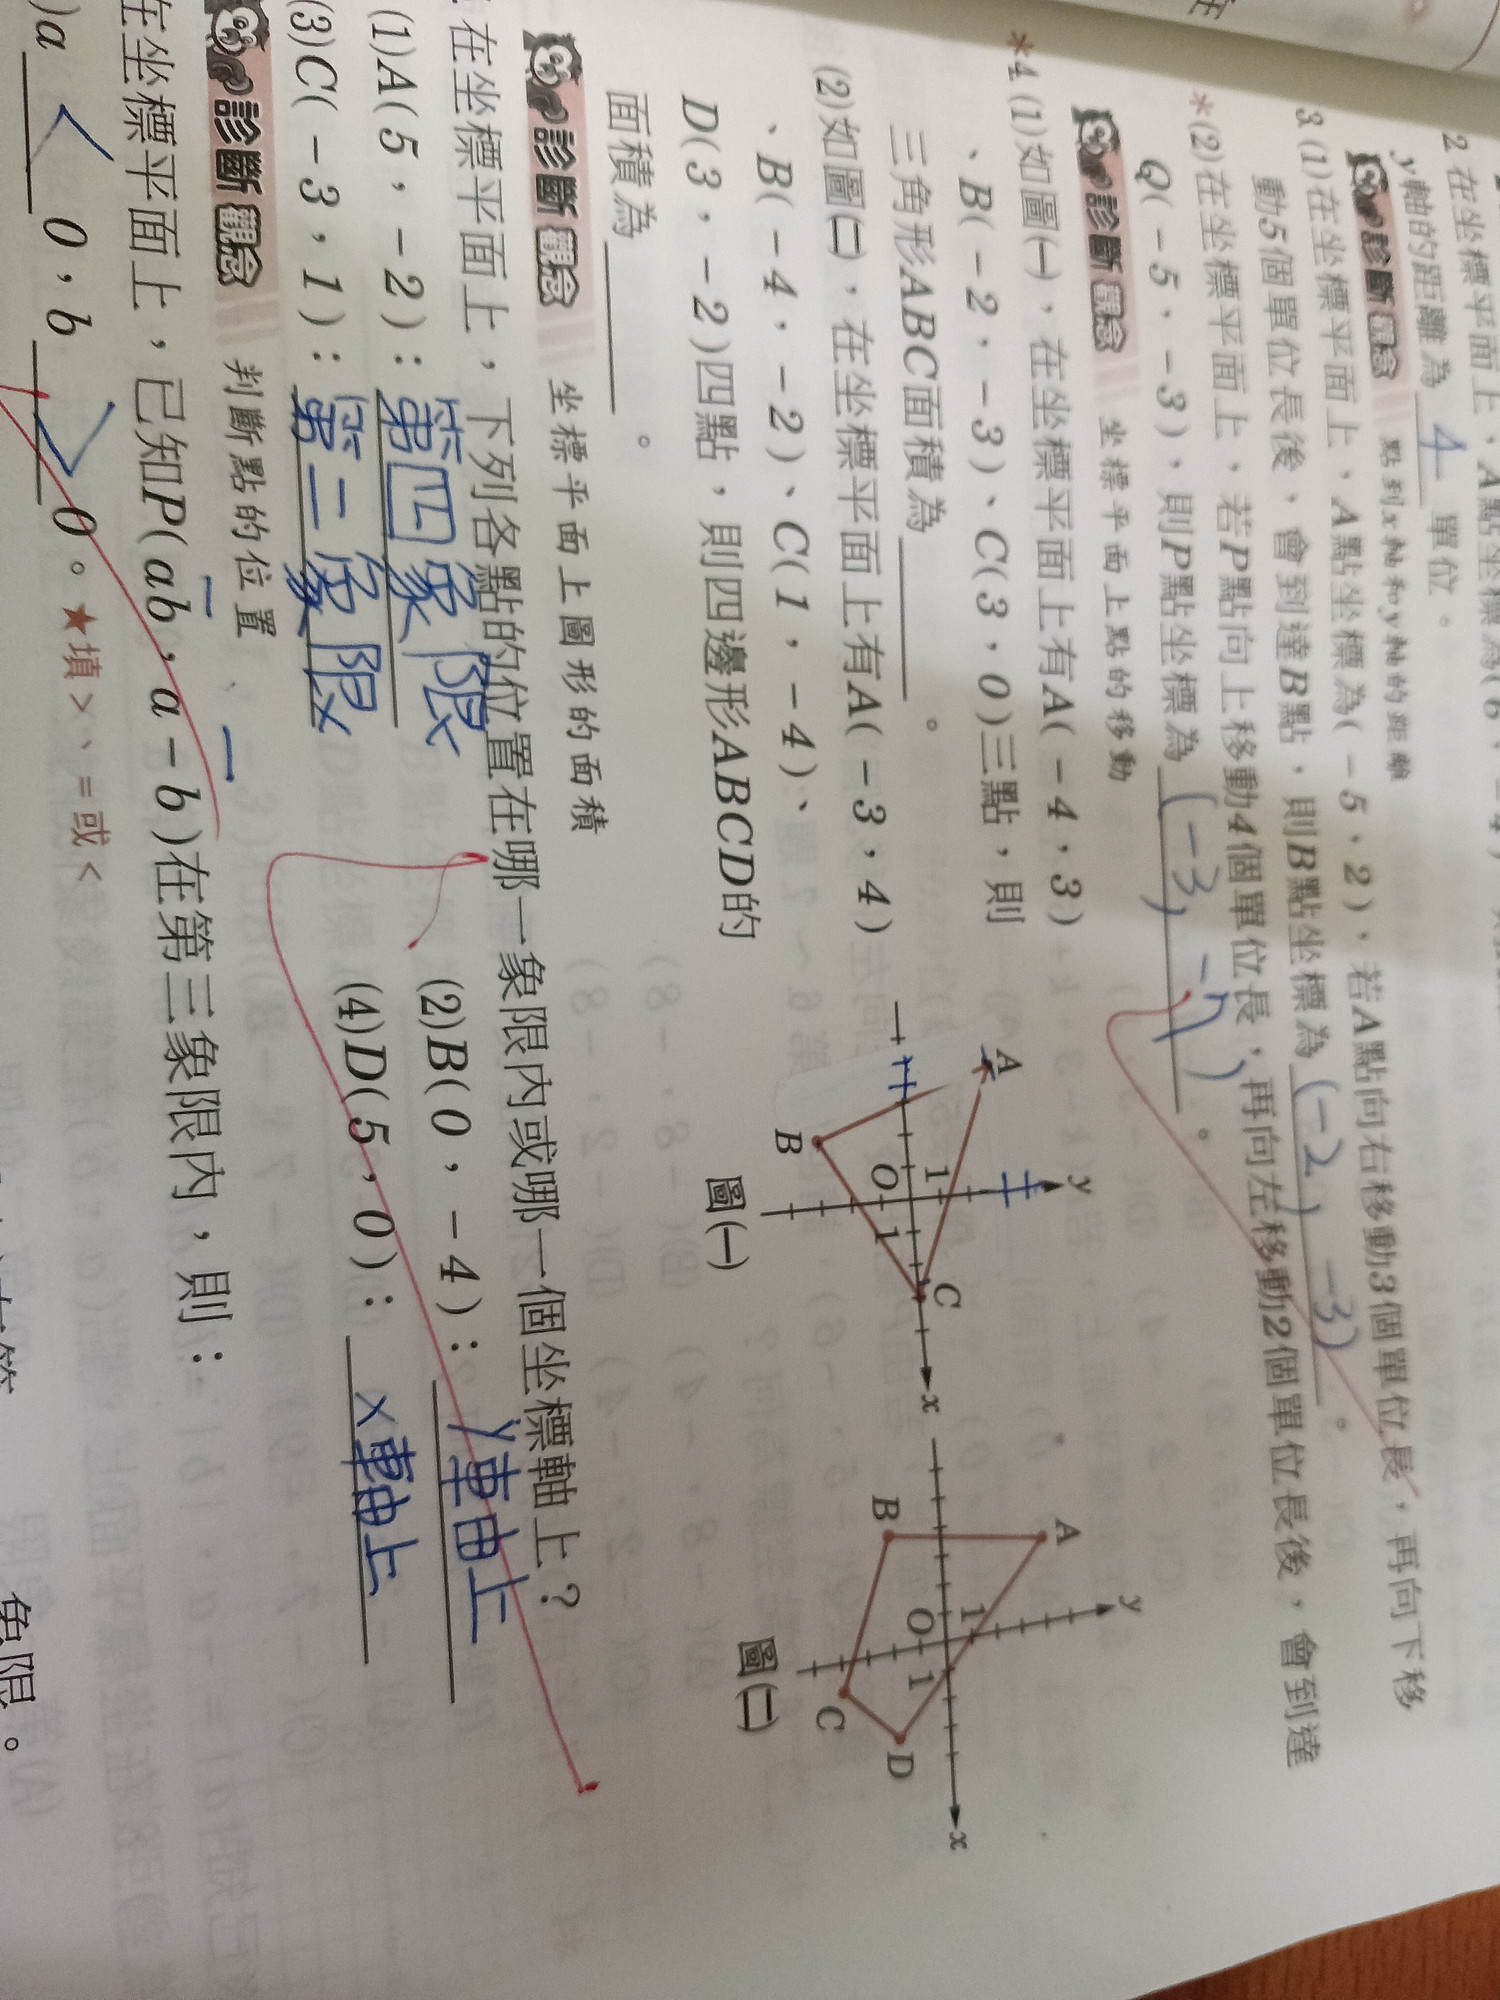 2 在坐標平面上，A點坐標為(6，-4)
y軸的距離為 4 單位。
診斷觀念 點到x軸和y軸的距離
3 (1)在坐標平面上，A點坐標為(-5，2)，若A點向右移動3個單位長，再向下移
動5個單位長後，會到達B點，則B點坐標為 (-2, -3) 。
*(2)在坐標平面上，若P點向上移動4個單位長，再向左移動2個單位長後，會到達
Q(-5，-3)，則P點坐標為 (-3, -7) 。
診斷觀念 坐標平面上點的移動
*4 (1)如圖(一)，在坐標平面上有A(-4，3)
、B(-2，-3)、C(3，0)三點，則
三角形ABC面積為 。
(2)如圖(二)，在坐標平面上有A(-3，4)
、B(-4，-2)、C(1，-4)、
D(3，-2)四點，則四邊形ABCD的
面積為 。
A
B
C
O
1
1
x
y
圖(一)
A
B
C
D
O
1
1
x
y
圖(二)
診斷觀念 坐標平面上圖形的面積
在坐標平面上，下列各點的位置在哪一象限內或哪一個坐標軸上？
(1)A(5，-2)：第四象限 (2)B(0，-4)：y軸上
(3)C(-3，1)：第二象限 (4)D(5，0)：x軸上
診斷觀念 判斷點的位置
在坐標平面上，已知P(ab，a-b)在第三象限內，則：
)a < 0，b > 0。★填>、=或<
象限。